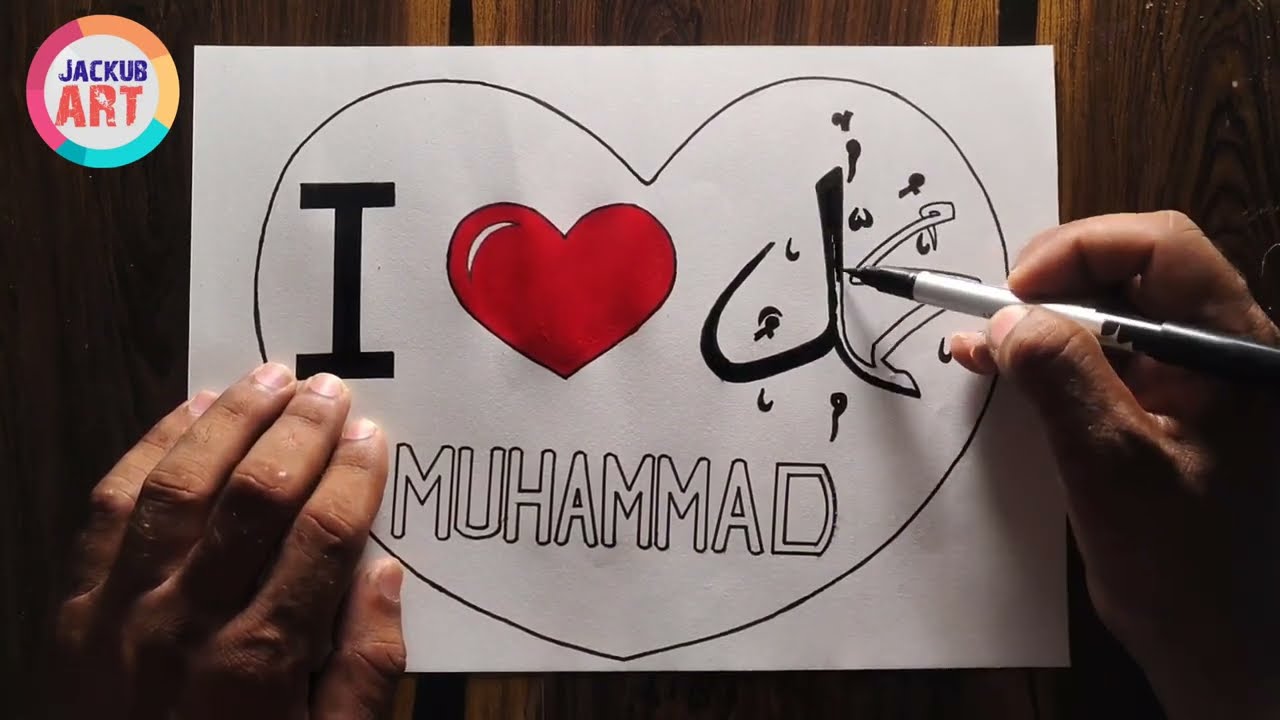 JACKUB
ART
I ❤ محمد
MUHAMMAD